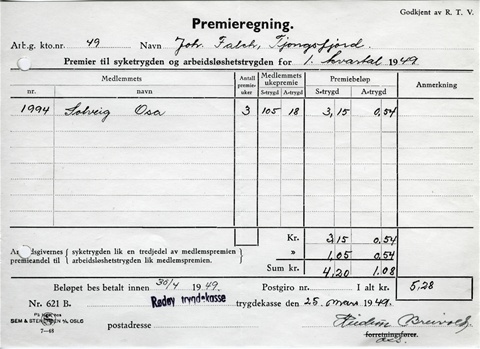 Godkjent av R. T. V.
Premieregning.
Arb.g. kto.nr. 49 Navn Joh. Falch, Tjongsfjord.
Premier til syketrygden og arbeidsløshetstrygden for 1. kvartal 1949.
Medlemmets Antall premie-uker Medlemmets ukepremie Premiebeløp Anmerkning
nr. navn S-trygd A-trygd S-trygd A-trygd
1994 Solveig Osa 3 105 18 3,15 0,54
Kr. 3,15 0,54
Arbeidsgivernes premieandel til { syketrygden lik en tredjedel av medlemspremien } » 1,05 0,54
{ arbeidsløshetstrygden lik medlemspremien. }
Sum kr. 4,20 1.08
Beløpet bes betalt innen 30/4 1949. Postgiro nr. I alt kr. 5,28
Nr. 621 B. Rødøy trygd-kasse trygdekasse den 25. mars 1949.
SEM & STENERSEN A/S OSLO
7-48
postadresse
forretningsfører.